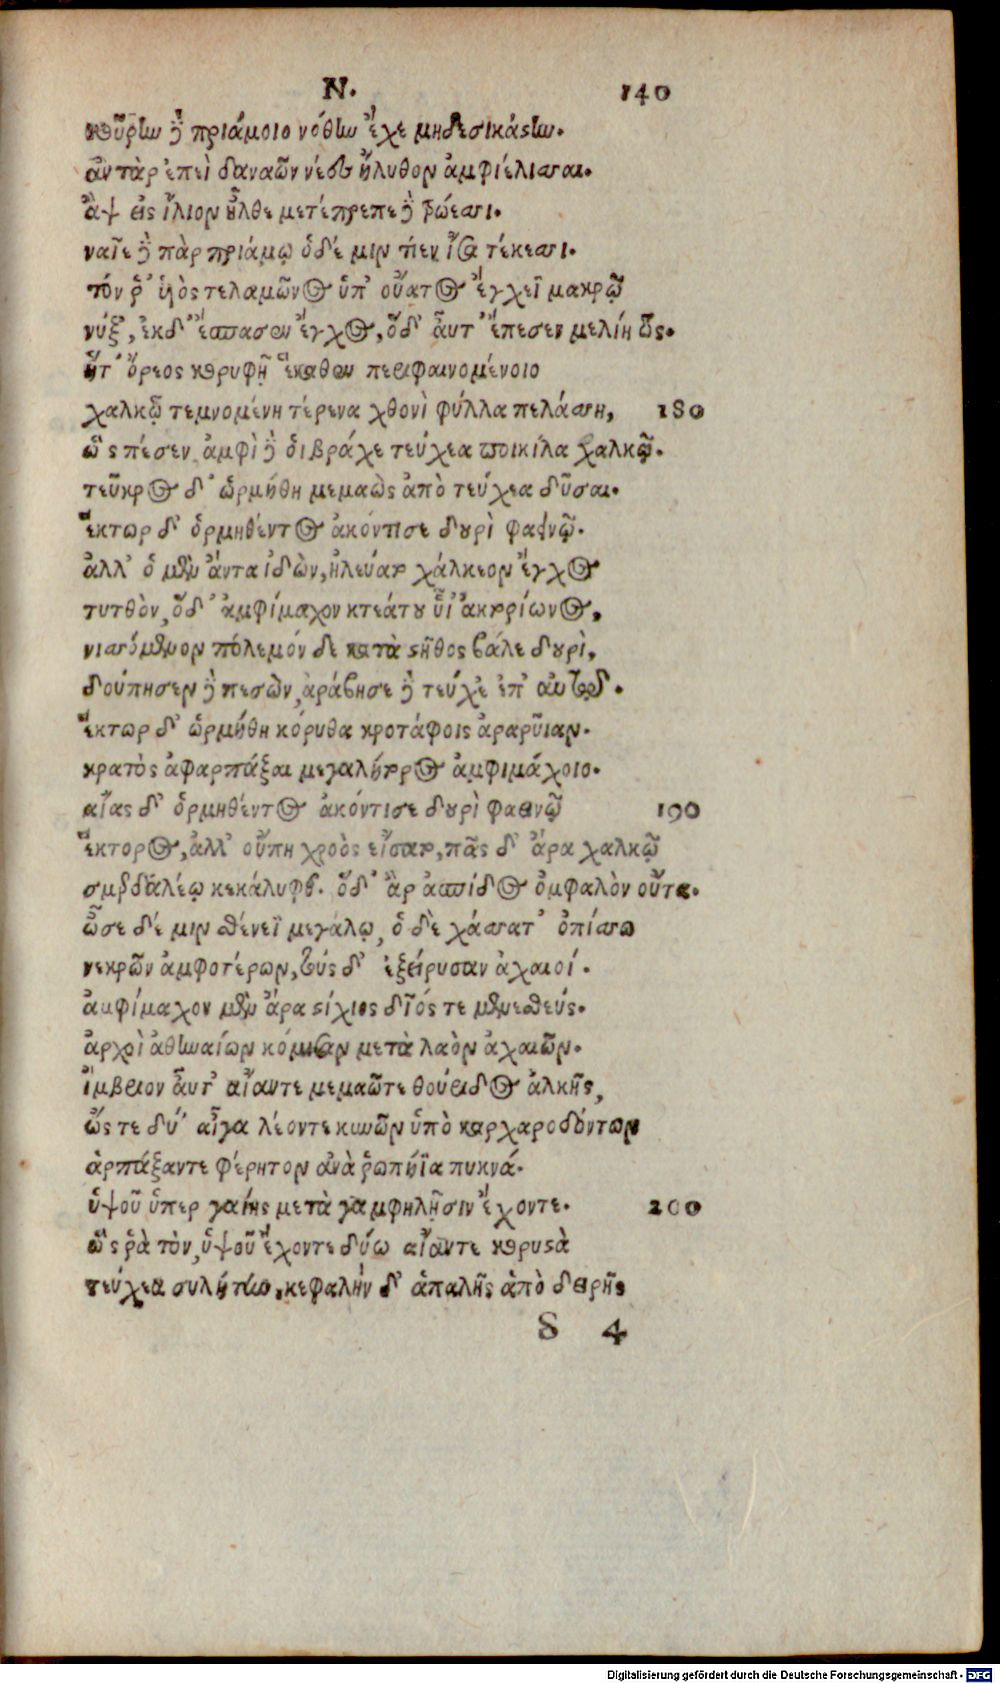 N. 140
κούρlω δὲ πριάμοιο νόθlω ἔχε μηδεσικάϛlω.
ἀυτὰρ ἐπεὶ δαναῶν νέες ἤλυθον ἀμφιέλισσαι.
ἂψ εἰς ἴλιον ἦλθε μετέπρεπε δὲ τρώεσσι.
ναῖε δὲ πὰρ πριάμῳ ὁδέ μιν τίεν ἶσα τέκεσσι.
τόν ῥ᾽ ὑιὸς τελαμῶνος ὑπ᾽ οὔατος ἔγχεϊ μακρῷ
νύξ᾽, ἐκδ᾽ ἔσπασεν ἔγχος, ὅδ᾽ ἆυτ᾽ ἔπεσεν μελίη ὥς.
ἥτ᾽ ὄρεος κορυφῇ ἕκαθεν περιφαινομένοιο
χαλκῷ τεμνομένη τέρενα χθονὶ φύλλα πελάσση, 180
ὣς πέσεν ἀμφὶ δὲ ὁιβράχε τεύχεα ποικίλα χαλκῷ.
τεῦκρος δ᾽ ὡρμήθη μεμαὼς ἀπὸ τεύχεα δῦσαι.
ἕκτωρ δ᾽ ὁρμηθέντος ἀκόντισε δουρὶ φαεινῷ.
ἀλλ᾽ ὁ μὲν ἄντα ἰδὼν, ἠλεύατο χάλκεον ἔγχος
τυτθὸν, ὅδ᾽ ἀμφίμαχον κτεάτου υἷ᾽ ἀκτορίωνος,
νισσόμενον πόλεμόν δε κατὰ ϛῆθος βάλε δουρὶ,
δούπησεν δὲ πεσὼν, ἀράβησε δὲ τεύχε᾽ ἐπ᾽ αὐτῷ.
ἕκτωρ δ᾽ ὡρμήθη κόρυθα κροτάφοις ἀραρῦιαν.
κρατὸς ἀφαρπάξαι μεγαλήτορος ἀμφιμάχοιο.
αἴας δ᾽ ὁρμηθέντος ἀκόντισε δουρὶ φαεινῷ 190
ἕκτορος, ἀλλ᾽ οὔπη χροὸς εἴσατο, πᾶς δ᾽ ἄρα χαλκῷ
σμερδαλέῳ κεκάλυφθ. ὅδ᾽ ἂρ ἀσπίδος ὀμφαλὸν οὖτα.
ὦσε δέ μιν σθένεϊ μεγάλῳ, ὁ δὲ χάσσατ᾽ ὀπίσσω
νεκρῶν ἀμφοτέρων, τοὺς δ᾽ ἐξείρυσαν ἀχαιοί.
ἀμφίμαχον μὲν ἄρα ϛίχιος δῖός τε μενεσθεύς.
ἀρχοὶ ἀθlωαίων κόμισαν μετὰ λαὸν ἀχαιῶν.
ἴμβριον ἆυτ᾽ αἴαντε μεμαῶτε θούριδος ἀλκῆς,
ὥς τε δύ᾽ αἶγα λέοντε κυνῶν ὑπὸ καρχαροδόντων
ἁρπάξαντε φέρητον ἀνὰ ῥωπήϊα πυκνά.
ὑψοῦ ὑπερ γαίης μετὰ γαμφηλῇσιν ἔχοντε. 200
ὣς ῥὰ τὸν, ὑψοῦ ἔχοντε δύω αἴαντε κορυϛὰ
τεύχεα συλήτlω, κεφαλὴν δ᾽ ἁπαλῆς ἀπὸ δειρῆς
S 4
Digitalisierung gefördert durch die Deutsche Forschungsgemeinschaft - DFG